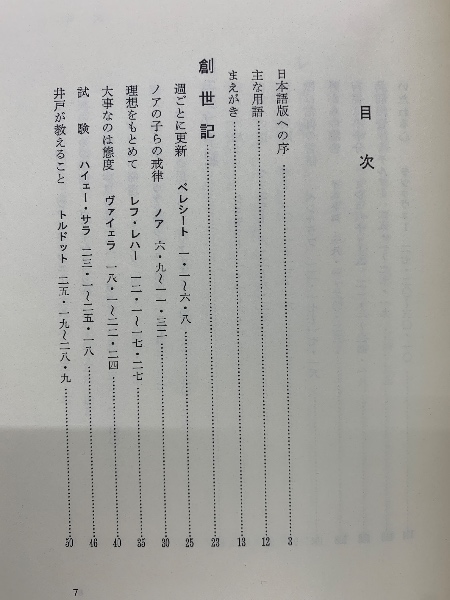 目次
日本語版への序 3
主な用語 12
まえがき 13
創世記 23
週ごとに更新 ベレシート 一・一〜六・八 25
ノアの子らの戒律 ノア 六・九〜一一・三二 30
理想をもとめて レフ・レハー 一二・一〜一七・二七 35
大事なのは態度 ヴァイェラ 一八・一〜二二・二四 40
試験 ハイェー・サラ 二三・一〜二五・一八 46
井戸が教えること トルドット 二五・一九〜二八・九 50
7